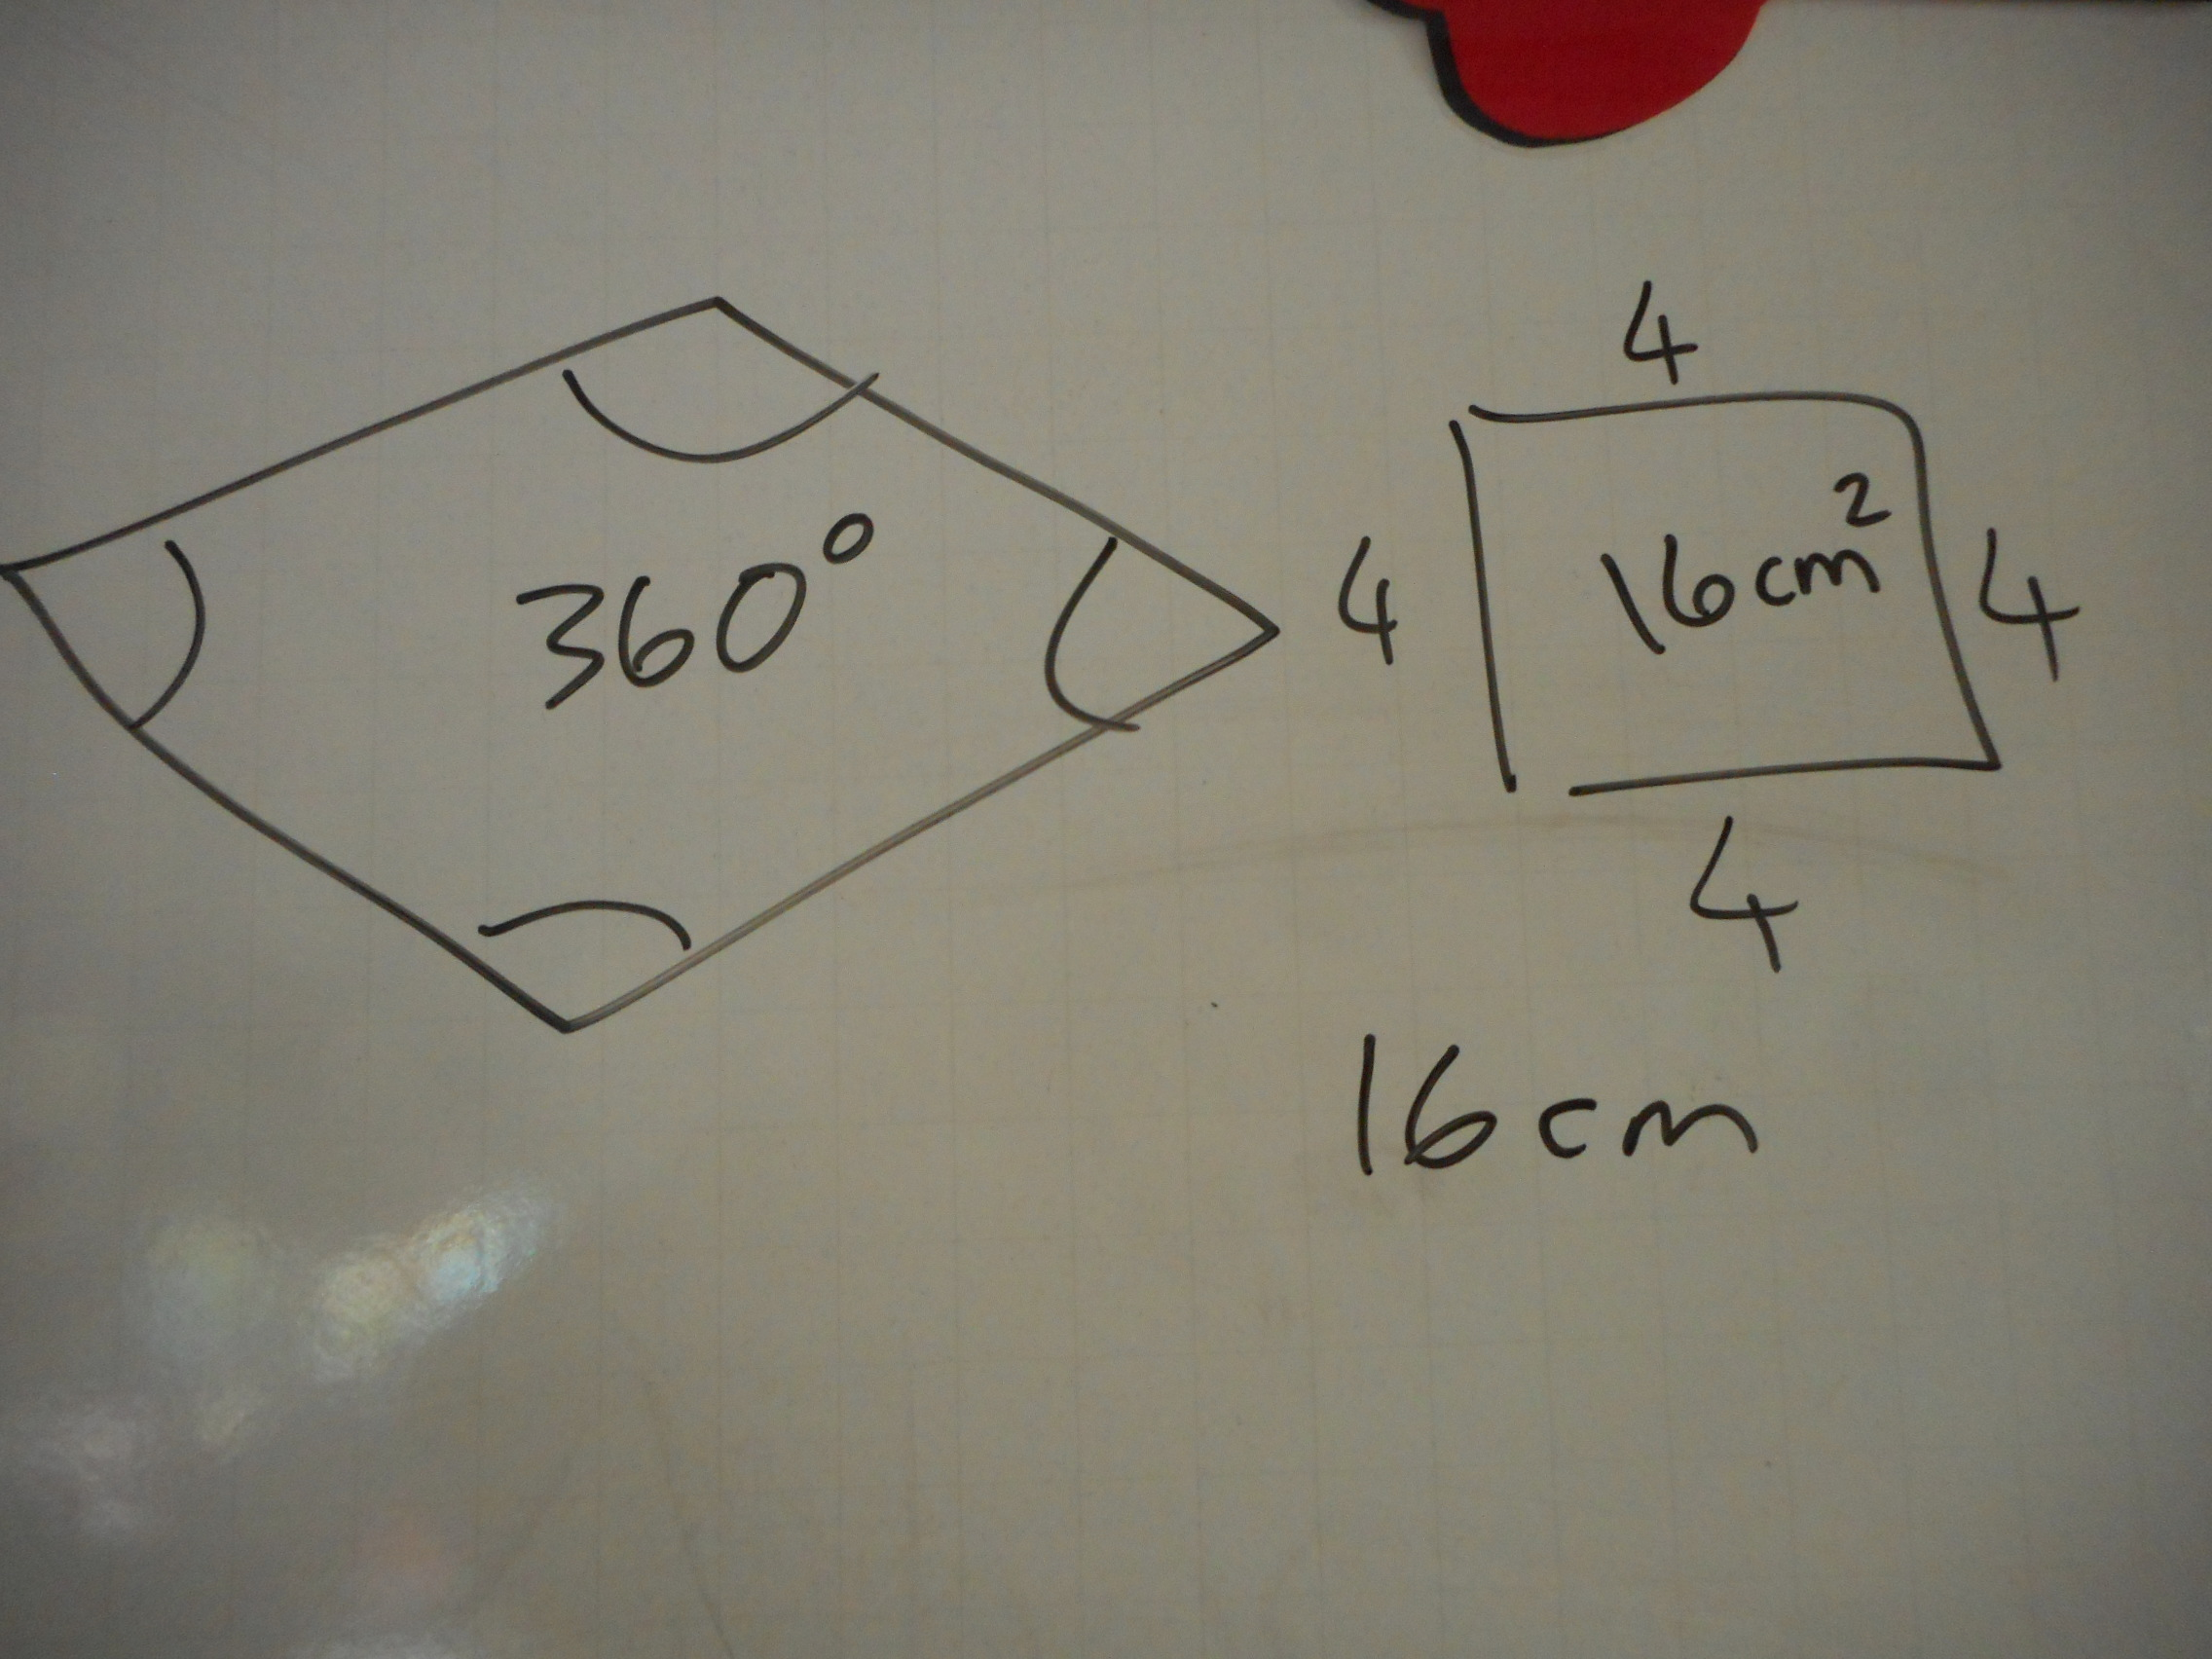 360°
4
4
16cm²
4
4
16cm